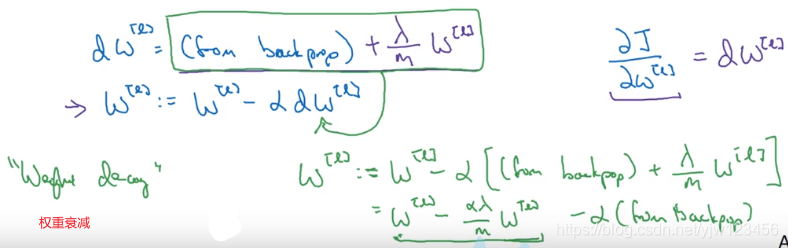 dW^[l] = (from backprop) + λ/m W^[l]
∂J/∂W^[l] = dW^[l]
→ W^[l] := W^[l] - α dW^[l]
"Weight decay"
W^[l] := W^[l] - α [(from backprop) + λ/m W^[l]]
= W^[l] - αλ/m W^[l] - α (from backprop)
权重衰减
https://blog.csdn.net/yjw123456
A